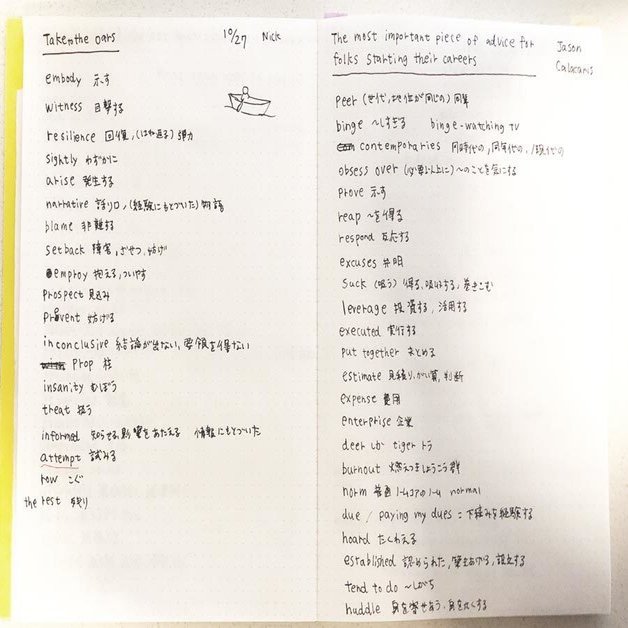 Take the oars
10/27 Nick
embody 示す
witness 目撃する
resilience 回復,(はね返る)弾力
sightly わずかに
arise 発生する
narrative 語り口,(経験にもとづいた)物語
blame 非難する
setback 障害,ざせつ,妨げ
emproy 抱える,ついやす
prospect 見込み
prevent 妨げる
inconclusive 結論が出ない,要領を得ない
prop 柱
insanity むぼう
treat 扱う
informed 知らせる,影響をあたえる 情報にもとづいた
attempt 試みる
row こぐ
the rest 残り
The most important piece of advice for
folks starting their careers
Jason
Calacanis
peer (世代,地位が同じの)同輩
binge 〜しすぎる binge-watching TV
contemporaries 同時代の,同年代の,現代の
obsess over (必要以上に)〜のことを気にする
prove 示す
reap 〜を得る
respond 反応する
excuses 弁明
suck (吸う) 得る,吸収する,巻きこむ
leverage 投資する,活用する
executed 実行する
put together まとめる
estimate 見積り,がい算,判断
expense 費用
enterprise 企業
deer しか tiger トラ
burnout 燃えつきしょうこう群
norm 普通 normal
due / paying my dues = 下積みを経験する
hoard たくわえる
established 認められた,築きあげる,設立する
tend to do 〜しがち
huddle 身を寄せあう,身を丸くする